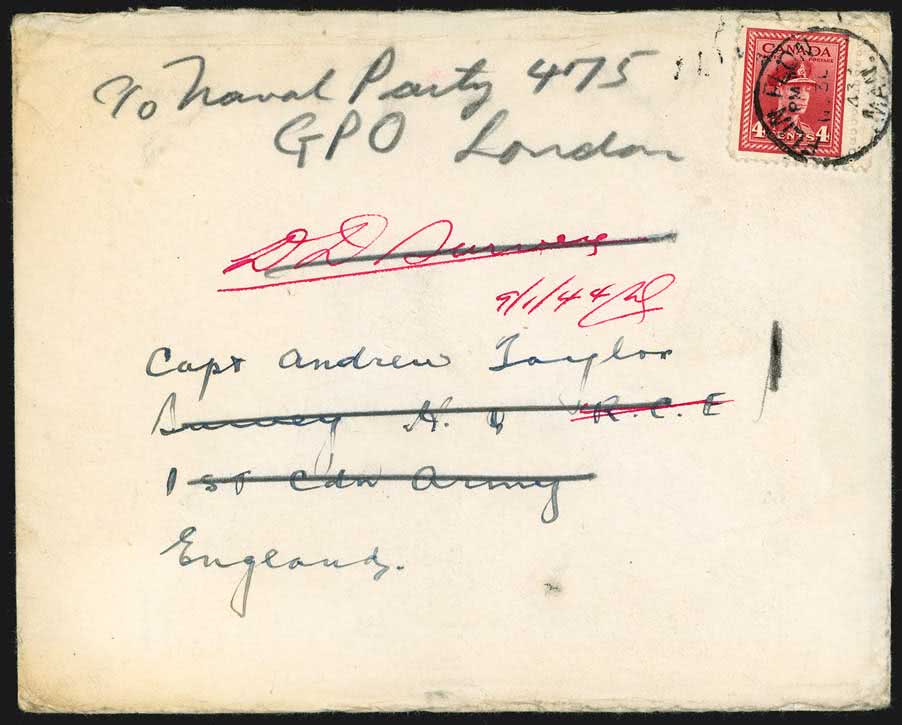 CANADA
POSTAGE
4 CENTS 4
FLIN FLON
PM
43
MAN.
c/o Naval Party 475
GPO London
D D Survey
9/1/44
Capt Andrew Taylor
Survey H. Q R.C.E
1st Cdn Army
England.